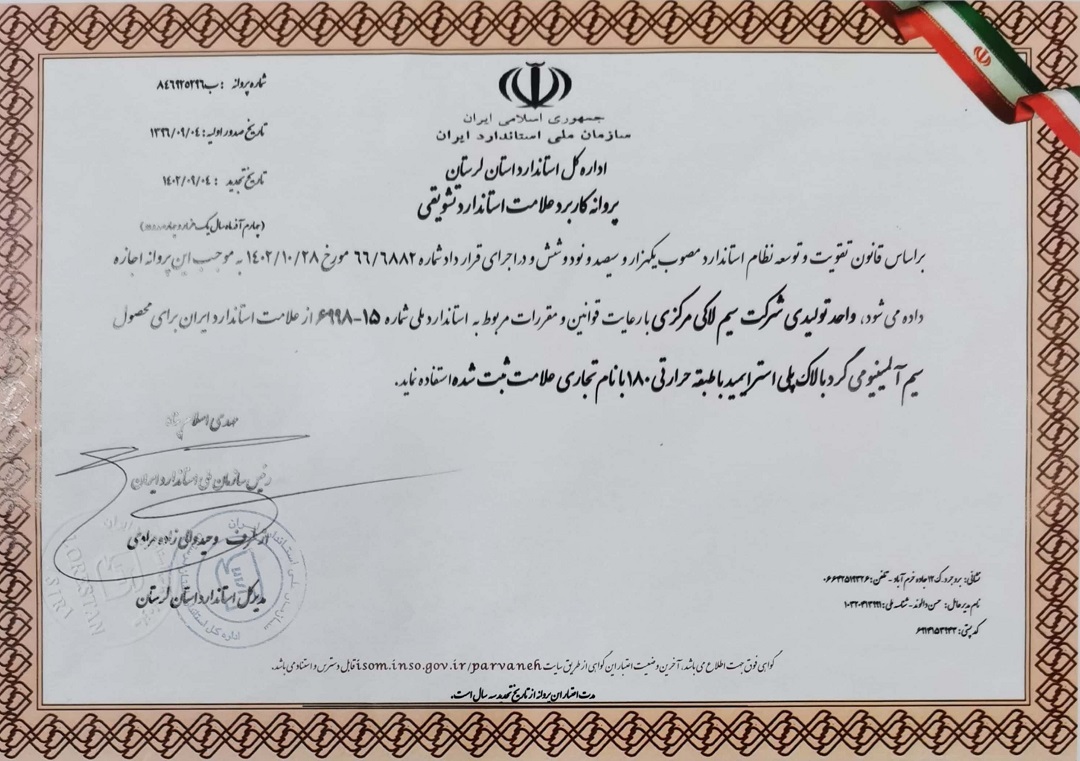 جمهوری اسلامی ایران
سازمان ملی استاندارد ایران
اداره کل استاندارد استان لرستان
پروانه کاربرد علامت استاندارد تشویقی
شماره پروانه : ب۸۴۶۹۲۵۲۹۶
تاریخ صدور اولیه: ۱۳۹۶/۰۹/۰۴
تاریخ تجدید : ۱۴۰۲/۰۹/۰۴
(چهارم آذرماه سال یک هزار و چهارصد و
براساس قانون تقویت و توسعه نظام استاندارد مصوب یکهزار و سیصد و نود و شش و در اجرای قرارداد شماره ۶۶/۶۸۸۲ مورخ ۱۴۰۲/۱۰/۲۸ به موجب این پروانه اجازه
داده می شود، واحد تولیدی شرکت سیم لاکی مرکزی با رعایت قوانین و مقررات مربوط به استاندارد ملی شماره ۱۵-۶۹۹۸ از علامت استاندارد ایران برای محصول
سیم آلمینیومی گرد با لاک پلی استرایمید با طبقه حرارتی ۱۸۰ با نام تجاری علامت ثبت شده استفاده نماید.
مهدی اسلام پناه
رئیس سازمان ملی استاندارد ایران
از طرف وحید والی زاده مرادی
مدیرکل استاندارد استان لرستان
LORESTAN
نشانی: بروجرد، ک ۱۲ جاده خرم آباد - تلفن: ۰۶۶۴۲۵۱۹۳۲۶
نام مدیرعامل: حسن دالوند - شناسه ملی:
کد پستی:
گواهی فوق جهت اطلاع می باشد، آخرین وضعیت اعتبار این گواهی از طریق سایت isom.inso.gov.ir/parvaneh قابل دسترس و استناد می باشد.
مدت اعتبار این پروانه از تاریخ تجدید سه سال است.